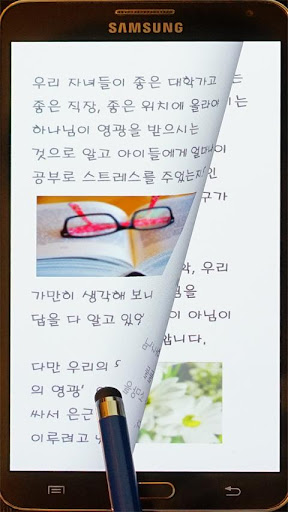 SAMSUNG
우리 자녀들이 좋은 대학가고 는
좋은 직장, 좋은 위치에 올라 는
하나님이 영광을 받으시는
것으로 알고 아이들에게 얼마 이
공부로 스트레스를 주었는지 인
구가
, 우리
가만히 생각해 보니 님을
답을 다 알고 있 이 아님이
니다.
다만 우리의
의 영광'
싸서 은근
이루려고